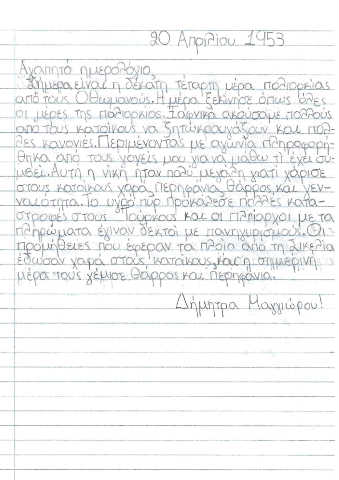 20 Απριλίου 1453
Αγαπητό ημερολόγιο,
Σήμερα είναι η δέκατη τέταρτη μέρα πολιορκίας
από τους Οθωμανούς. Η μέρα ξεκίνησε όπως όλες
οι μέρες της πολιορκίας. Ξαφνικά ακούσαμε πολλούς
από τους κατοίκους να ζητωκραυγάζουν και πολ-
λές κανονιές. Περιμένοντας με αγωνία πληροφορή-
θηκα από τους γονείς μου για να μάθω τι έχει συ-
μβεί. Αυτή η νίκη ήταν πολύ μεγάλη γιατί χάρισε
στους κατοίκους χαρά, περηφάνια, θάρρος και γεν-
ναιότητα. Το υγρό πυρ προκάλεσε πολλές κατα-
στροφές στους Τούρκους και οι πλοίαρχοι με τα
πληρώματα έγιναν δεκτοί με πανηγυρισμούς. Οι
προμήθειες που έφεραν τα πλοία από τη Σικελία
έδωσαν χαρά στους κατοίκους και η σημερινή
μέρα τους γέμισε θάρρος και περηφάνια.
Δήμητρα Μαγγιώρου!